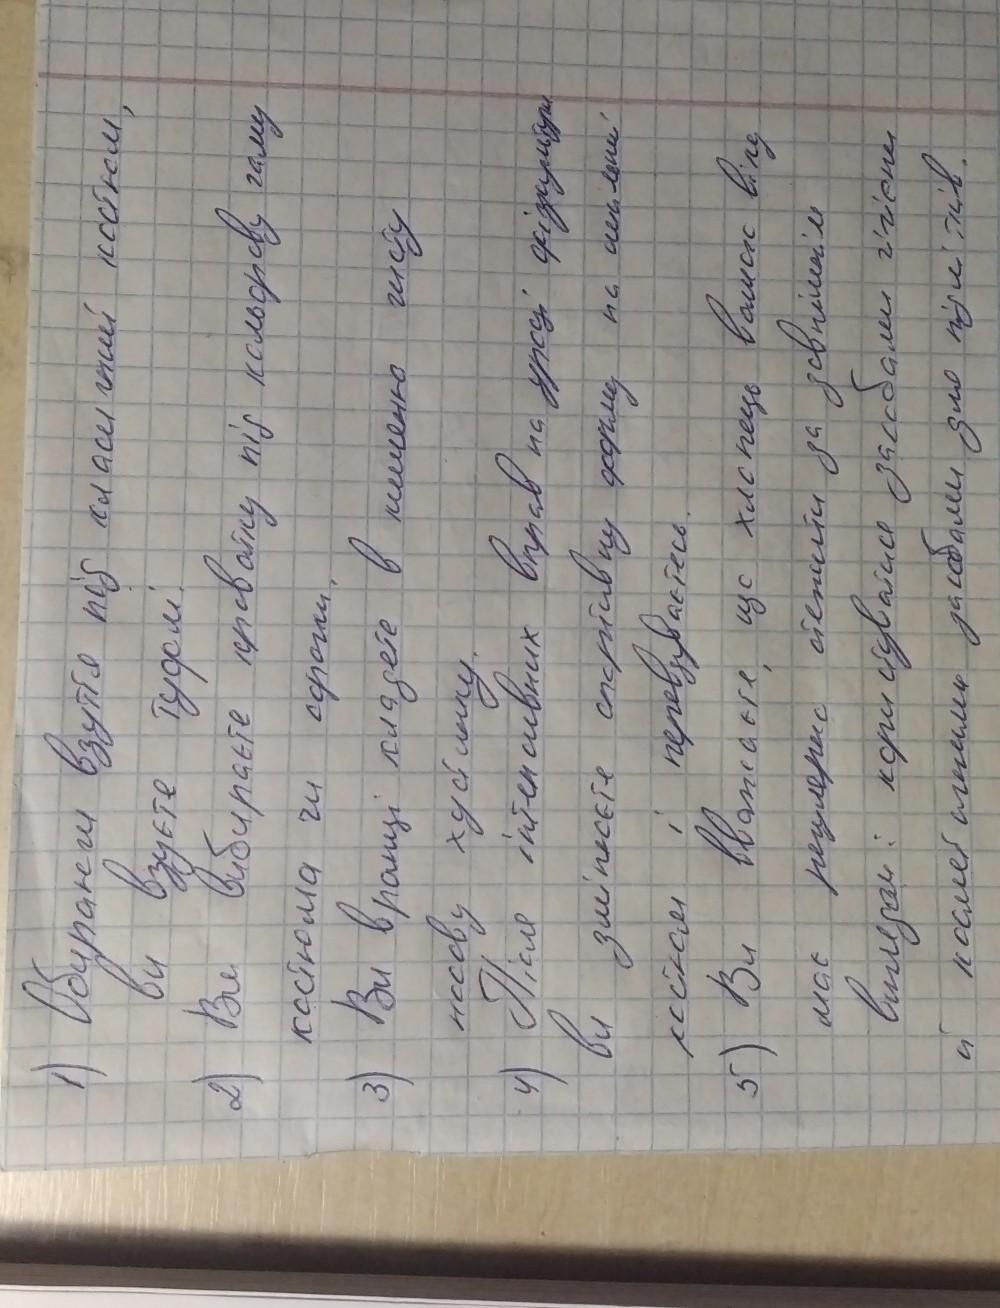 1) Обираючи взуття під класичний костюм,
ви взуєте туфлі.
2) Ви вибираєте краватку під кольорову гаму
костюма чи сорочки.
3) Ви вранці кладете в кишеню чисту
носову хустинку.
4) Після інтенсивних вправ на уроці фізкультури
ви змінюєте спортивну форму на шкільний
костюм і перевзуваєтесь.
5) Ви вважаєте, що хлопець вашого віку
має регулярно стежити за зовнішнім
виглядом: користуватися засобами гігієни
й косметичними засобами для підлітків.